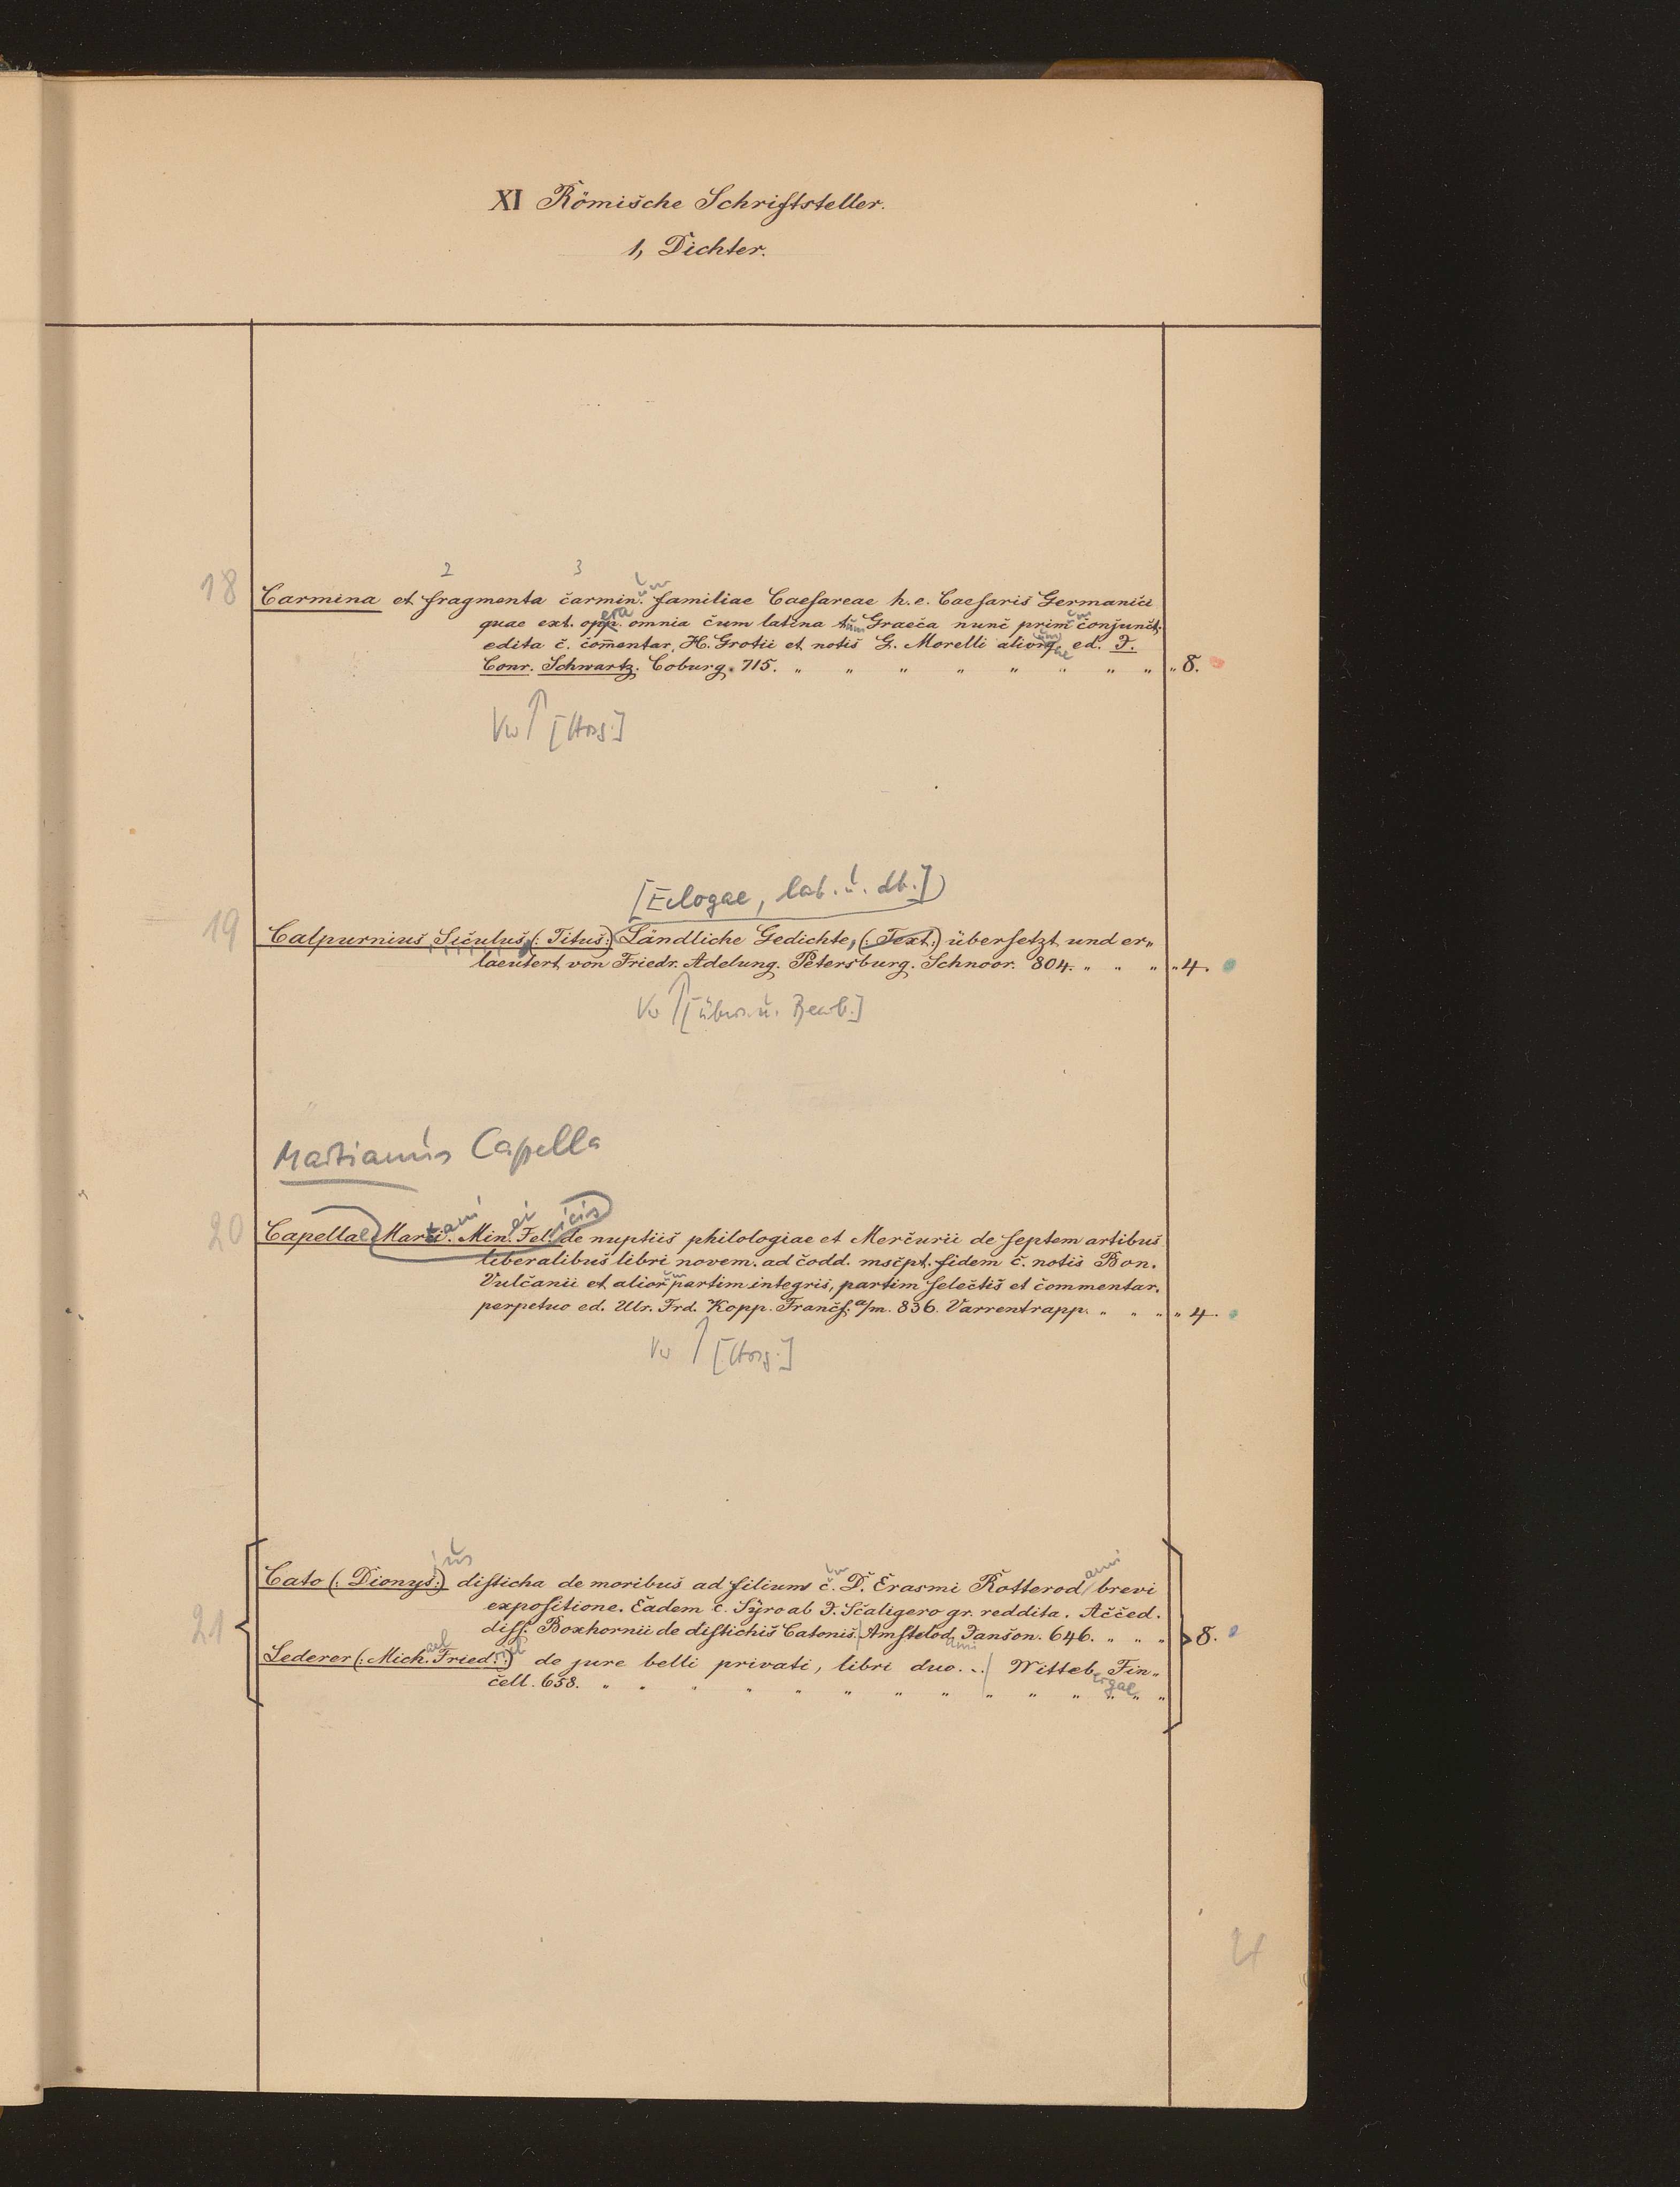 XI Römische Schriftsteller.
1, Dichter.
2 3
18 Carmina et fragmenta carmin. familiae Caesareae h. e. Caesaris Germanici
quae ext. opp. omnia cum latina tum Graeca nunc prim conjunct.
edita c. comentar. H. Grotii et notis G. Morelli aliorq. ed. J.
Conr. Schwartz. Coburg. 715. " " " " " " " " " 8.
Vw ↑ [Hrsg.]
[Eclogae, lat. u. dt.]
19 Calpurnius Siculus (: Titus:) Ländliche Gedichte, (: Text:) übersetzt und er„
laeutert von Friedr. Adelung. Petersburg. Schnoor. 804. " " " " 4.
Vw ↑ [Übers. u. Bearb.]
Martianus Capella
20 Capellae Marti. Min. Fel. de nuptiis philologiae et Mercurii de septem artibus
liberalibus libri novem. ad codd. mscpt. fidem c. notis Bon.
Vulcanii et alior partim integris, partim selectis et commentar.
perpetuo ed. Ulr. Frd. Kopp. Francf. a/m. 836. Varrentrapp. " " " " 4.
Vw ↑ [Hrsg.]
21 Cato (: Dionys:) disticha de moribus ad filium c. D. Erasmi Rotterod brevi
expositione. Eadem e. Syro ab J. Scaligero gr. reddita. Acced.
diss. Boxhornii de distichis Catonis. Amstelod. Janson. 646. " " " 8.
Lederer (: Mich. Fried:) de jure belli privati, libri duo... Witteb. Fin„
cell. 658. " " " " " " " " " " " " "